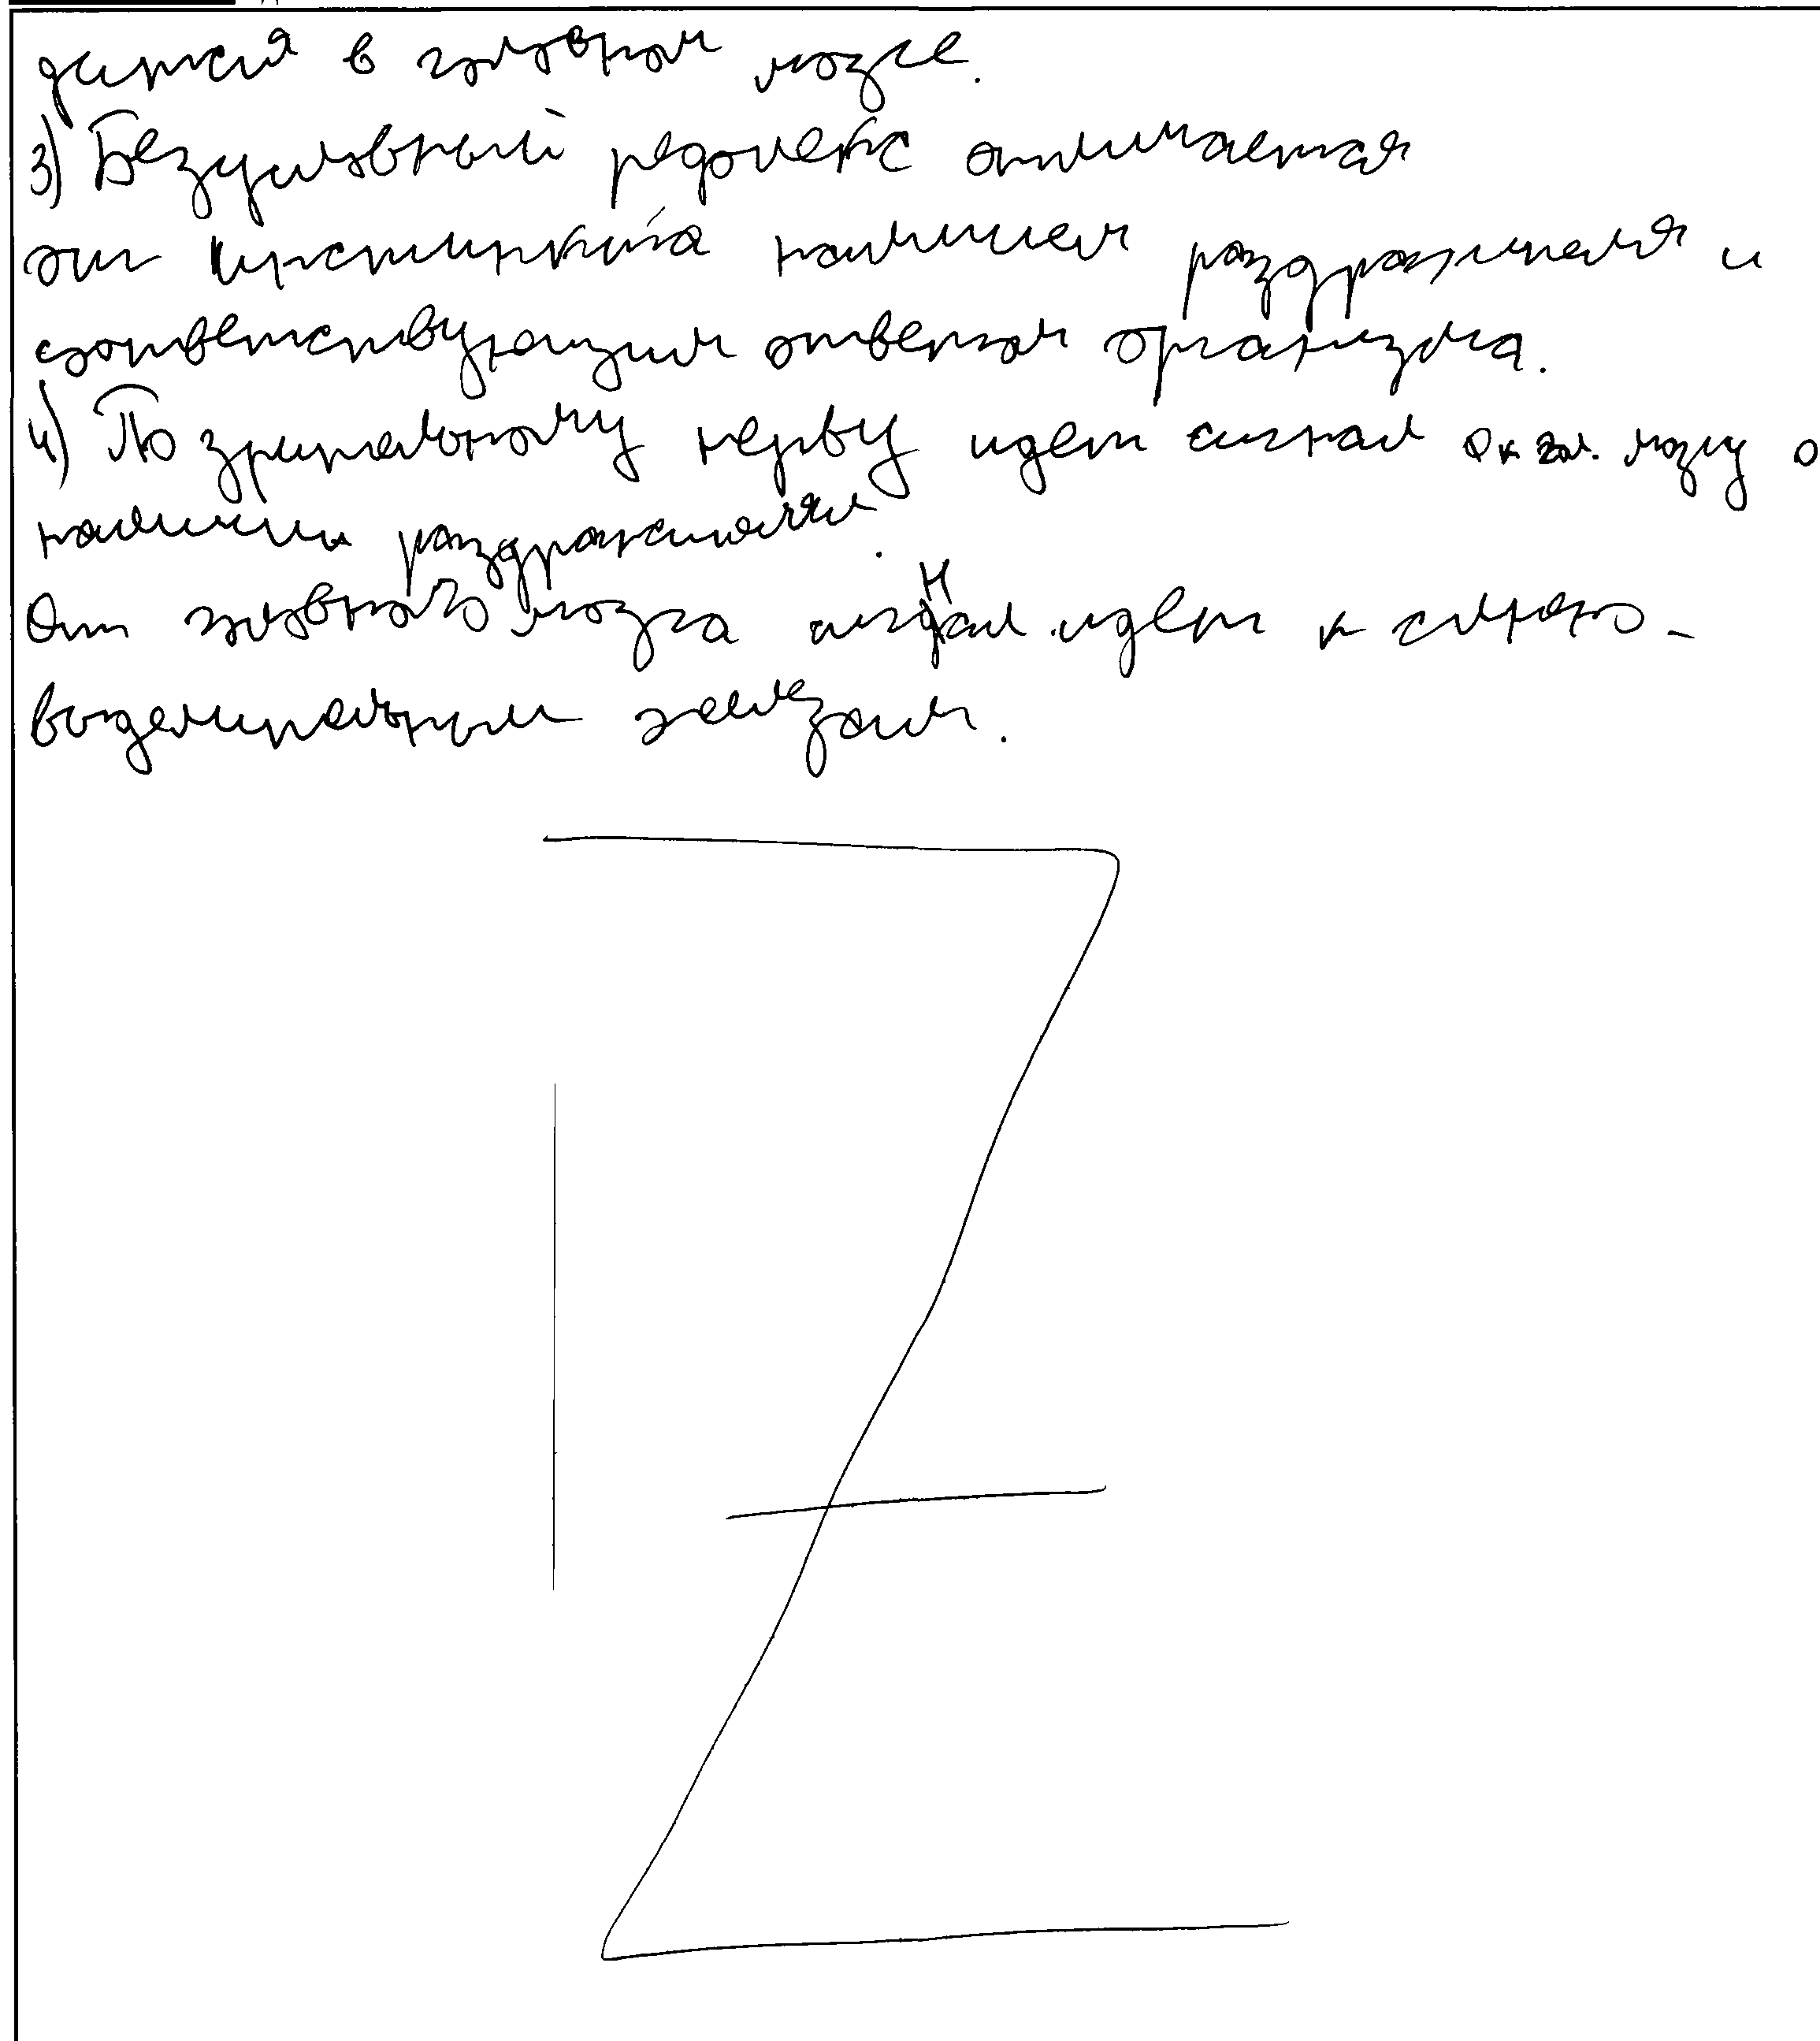 дится в головном мозге.
3) Безусловный рефлекс отличается
от инстинкта наличием раздражителя и
соответствующим ответом организма.
4) По зрительному нерву идет сигнал к гол. мозгу о
наличии раздражителя.
От головного мозга сигнал идет к слюно-
выделительным железам.